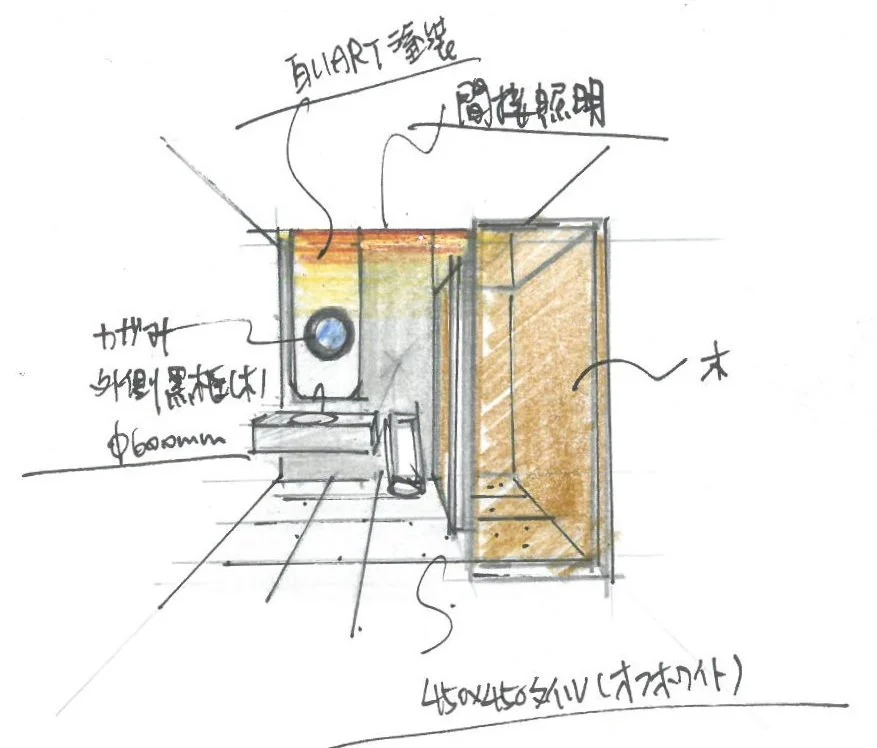 白いART塗装
間接照明
カガミ
外側黒框(木)
φ600mm
木
450×450タイル(オフホワイト)